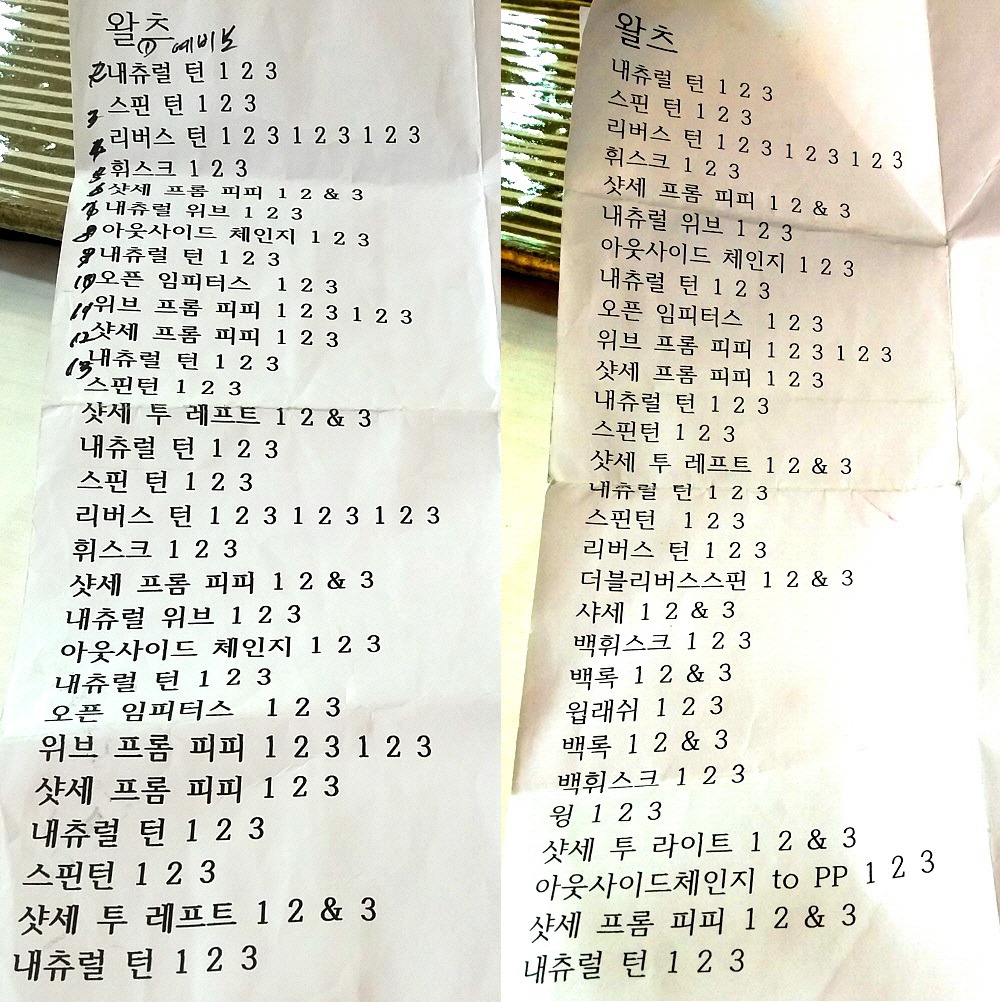 왈츠
① 예비보
2 내츄럴 턴 1 2 3
3 스핀 턴 1 2 3
4 리버스 턴 1 2 3 1 2 3 1 2 3
5 휘스크 1 2 3
6 샷세 프롬 피피 1 2 & 3
7 내츄럴 위브 1 2 3
8 아웃사이드 체인지 1 2 3
9 내츄럴 턴 1 2 3
10 오픈 임피터스 1 2 3
11 위브 프롬 피피 1 2 3 1 2 3
12 샷세 프롬 피피 1 2 3
13 내츄럴 턴 1 2 3
스핀턴 1 2 3
샷세 투 레프트 1 2 & 3
내츄럴 턴 1 2 3
스핀 턴 1 2 3
리버스 턴 1 2 3 1 2 3 1 2 3
휘스크 1 2 3
샷세 프롬 피피 1 2 & 3
내츄럴 위브 1 2 3
아웃사이드 체인지 1 2 3
내츄럴 턴 1 2 3
오픈 임피터스 1 2 3
위브 프롬 피피 1 2 3 1 2 3
샷세 프롬 피피 1 2 3
내츄럴 턴 1 2 3
스핀턴 1 2 3
샷세 투 레프트 1 2 & 3
내츄럴 턴 1 2 3
왈츠
내츄럴 턴 1 2 3
스핀 턴 1 2 3
리버스 턴 1 2 3 1 2 3 1 2 3
휘스크 1 2 3
샷세 프롬 피피 1 2 & 3
내츄럴 위브 1 2 3
아웃사이드 체인지 1 2 3
내츄럴 턴 1 2 3
오픈 임피터스 1 2 3
위브 프롬 피피 1 2 3 1 2 3
샷세 프롬 피피 1 2 3
내츄럴 턴 1 2 3
스핀턴 1 2 3
샷세 투 레프트 1 2 & 3
내츄럴 턴 1 2 3
스핀턴 1 2 3
리버스 턴 1 2 3
더블리버스스핀 1 2 & 3
샤세 1 2 & 3
백휘스크 1 2 3
백록 1 2 & 3
윕래쉬 1 2 3
백록 1 2 & 3
백휘스크 1 2 3
윙 1 2 3
샷세 투 라이트 1 2 & 3
아웃사이드체인지 to PP 1 2 3
샷세 프롬 피피 1 2 & 3
내츄럴 턴 1 2 3